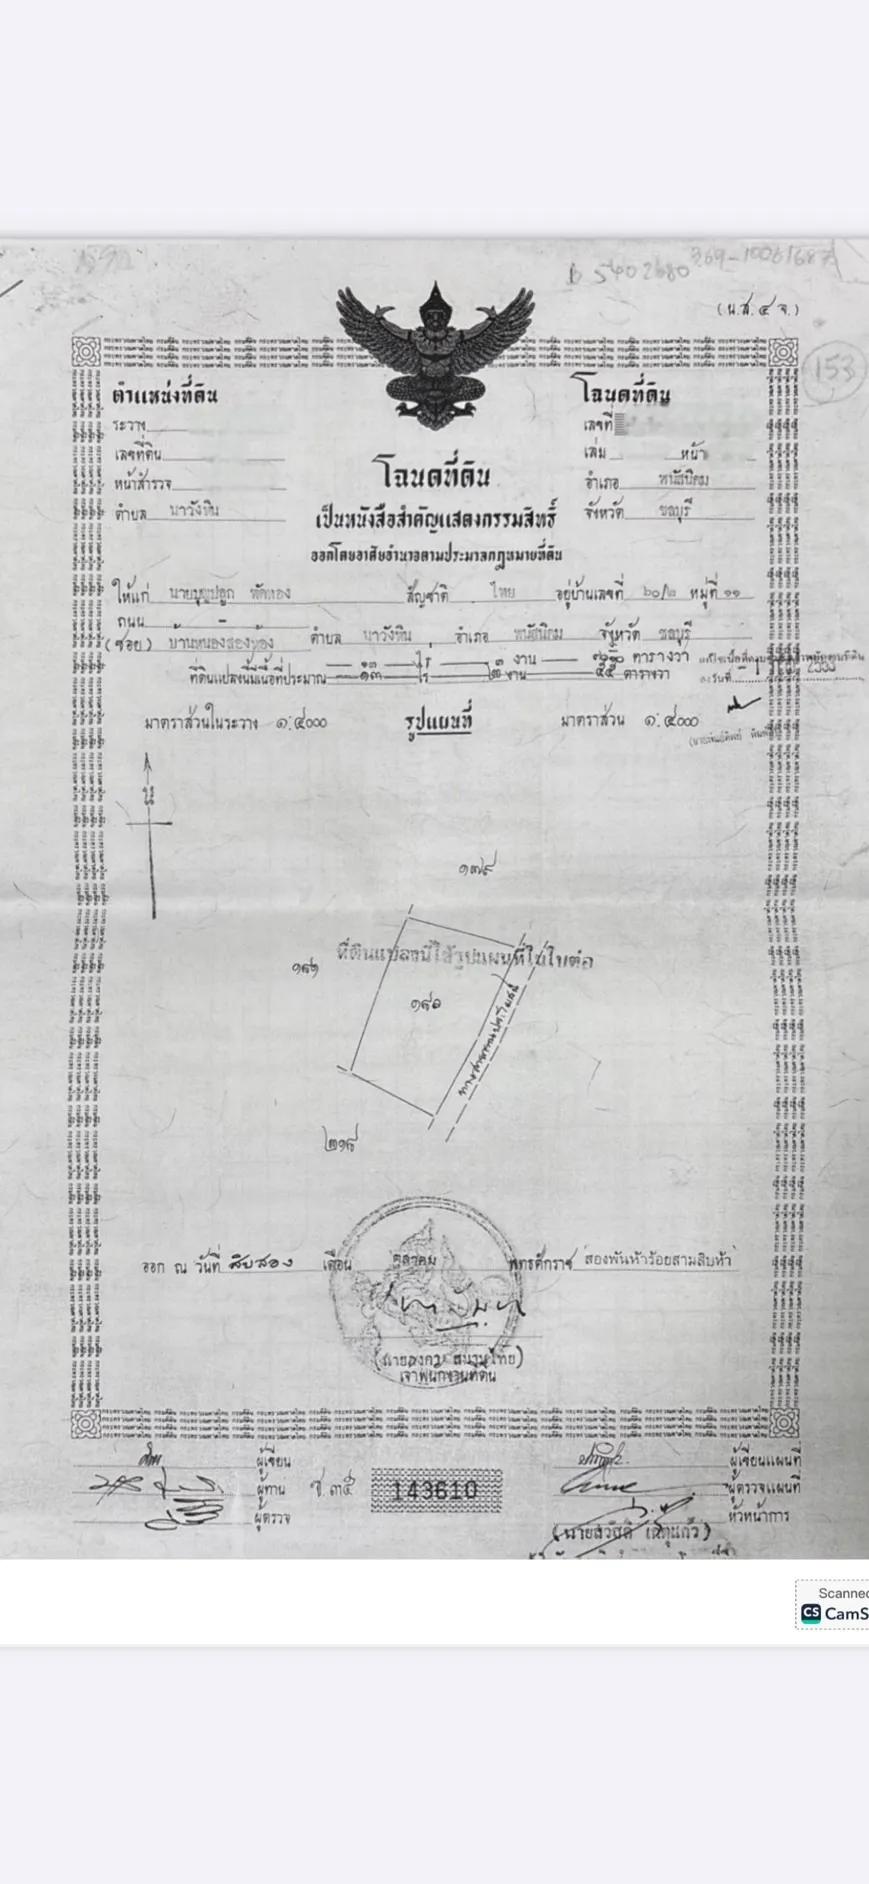 B 5402680
369-1006/687
(น.ส. ๔ จ.)
153
ตำแหน่งที่ดิน
ระวาง
เลขที่ดิน
หน้าสำรวจ
ตำบล นาวังหิน
โฉนดที่ดิน
เลขที่
เล่ม หน้า
อำเภอ พนัสนิคม
จังหวัด ชลบุรี
โฉนดที่ดิน
เป็นหนังสือสำคัญแสดงกรรมสิทธิ์
ออกโดยอาศัยอำนาจตามประมวลกฎหมายที่ดิน
ให้แก่ นายบุญปลูก พัดทอง สัญชาติ ไทย อยู่บ้านเลขที่ ๖๐/๒ หมู่ที่ ๑๑
ถนน -
(ซอย) บ้านหนองสองห้อง ตำบล นาวังหิน อำเภอ พนัสนิคม จังหวัด ชลบุรี
๑๓ ไร่ ๓ งาน ตารางวา
ที่ดินแปลงนี้มีเนื้อที่ประมาณ ๑๓ ไร่ ๒ งาน ๕๕ ตารางวา
มาตราส่วนในระวาง ๑:๔๐๐๐ รูปแผนที่ มาตราส่วน ๑:๔๐๐๐
๑๗๙
ที่ดินแปลงนี้ใช้รูปแผนที่ในใบต่อ
๑๘๑
๑๘๐
ทางสาธารณประโยชน์
๒๑๘
ออก ณ วันที่ สิบสอง เดือน ตุลาคม พุทธศักราช สองพันห้าร้อยสามสิบห้า
เจ้าพนักงานที่ดิน
ผู้เขียน
ผู้ทาน
ผู้ตรวจ
ช.๓๕
143610
ผู้เขียนแผนที่
ผู้ตรวจแผนที่
หัวหน้าการ
Scanned
CS CamS